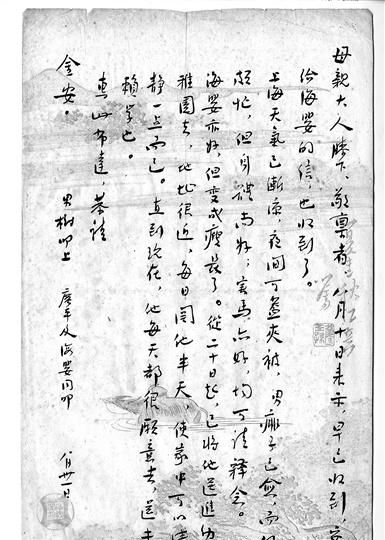 母親大人膝下，敬稟者，八月十日来示，早已收到，
給海嬰的信，也收到了。
上海天氣已漸涼，夜間可蓋夹被，男痱子已愈，而
頗忙，但身體尚好，害馬亦好，均可請釋念。
海嬰亦好，但变成瘦長了。從二十日起，已將他送進幼
稚園去，地址很近，每日關他半天，使家中可以清
静一点而已。直到現在，他每天都很願意去，還未
賴学也。
專此布達，恭請
金安。
男樹叩上 廣平及海嬰同叩 八月卅一日